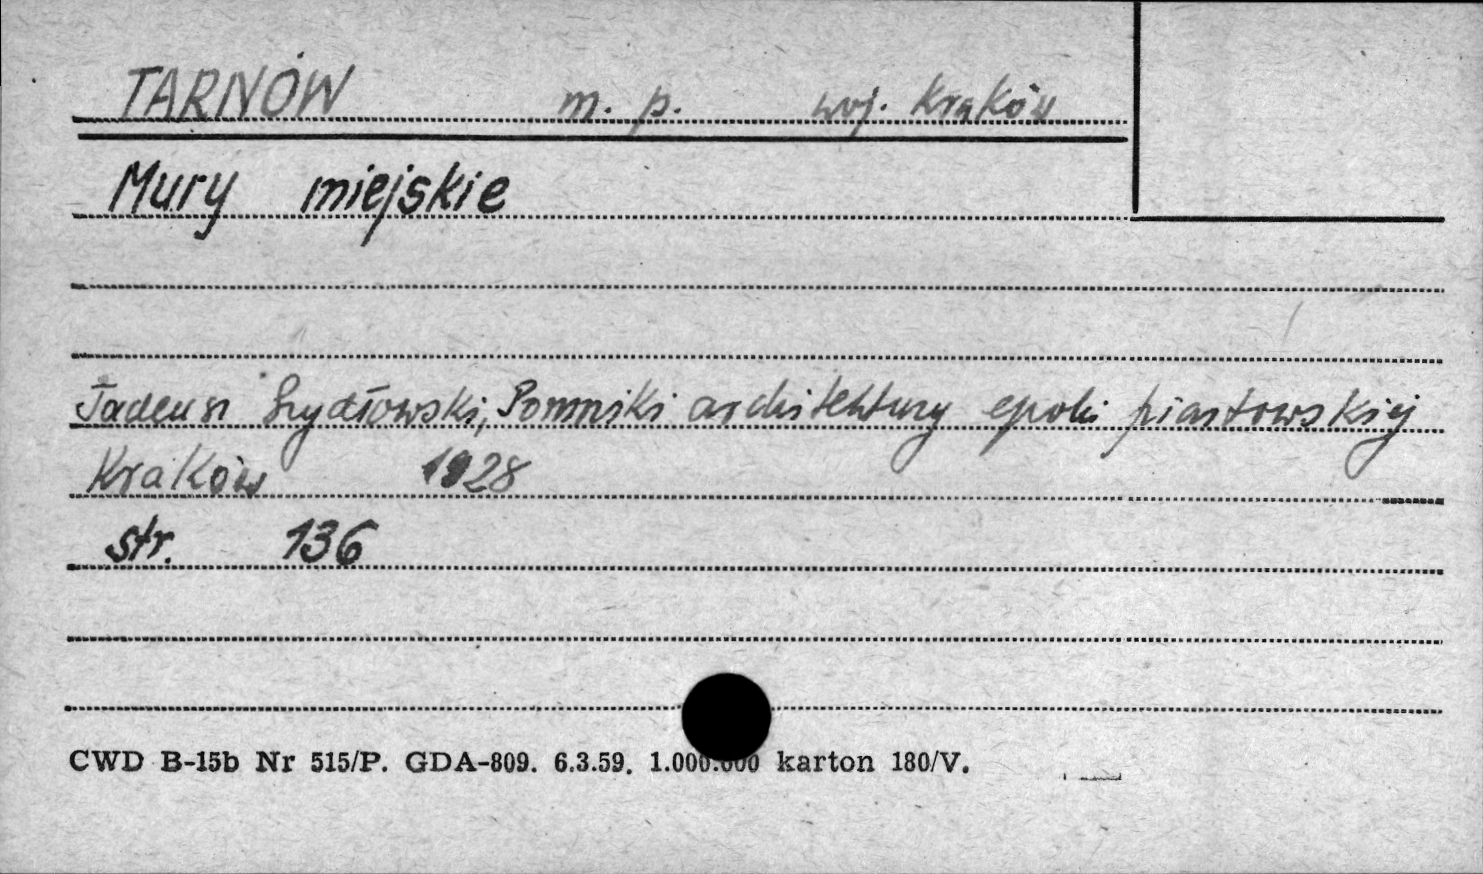 TARNÓW m. p. woj. Kraków
Mury miejskie
Tadeusz Szydłowski, Pomniki architektury epoki piastowskiej
Kraków 1928
str. 136
CWD B-15b Nr 515/P. GDA-809. 6.3.59. 1.000.000 karton 180/V.